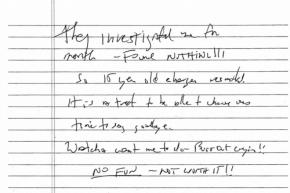 They investigated me for
month - Found NOTHING!!!
So 15 year old charges resulted
It is a treat to be able to choose ones
time to say goodbye.
Watcha want me to do - Burst out crying!!
NO FUN - NOT WORTH IT!!